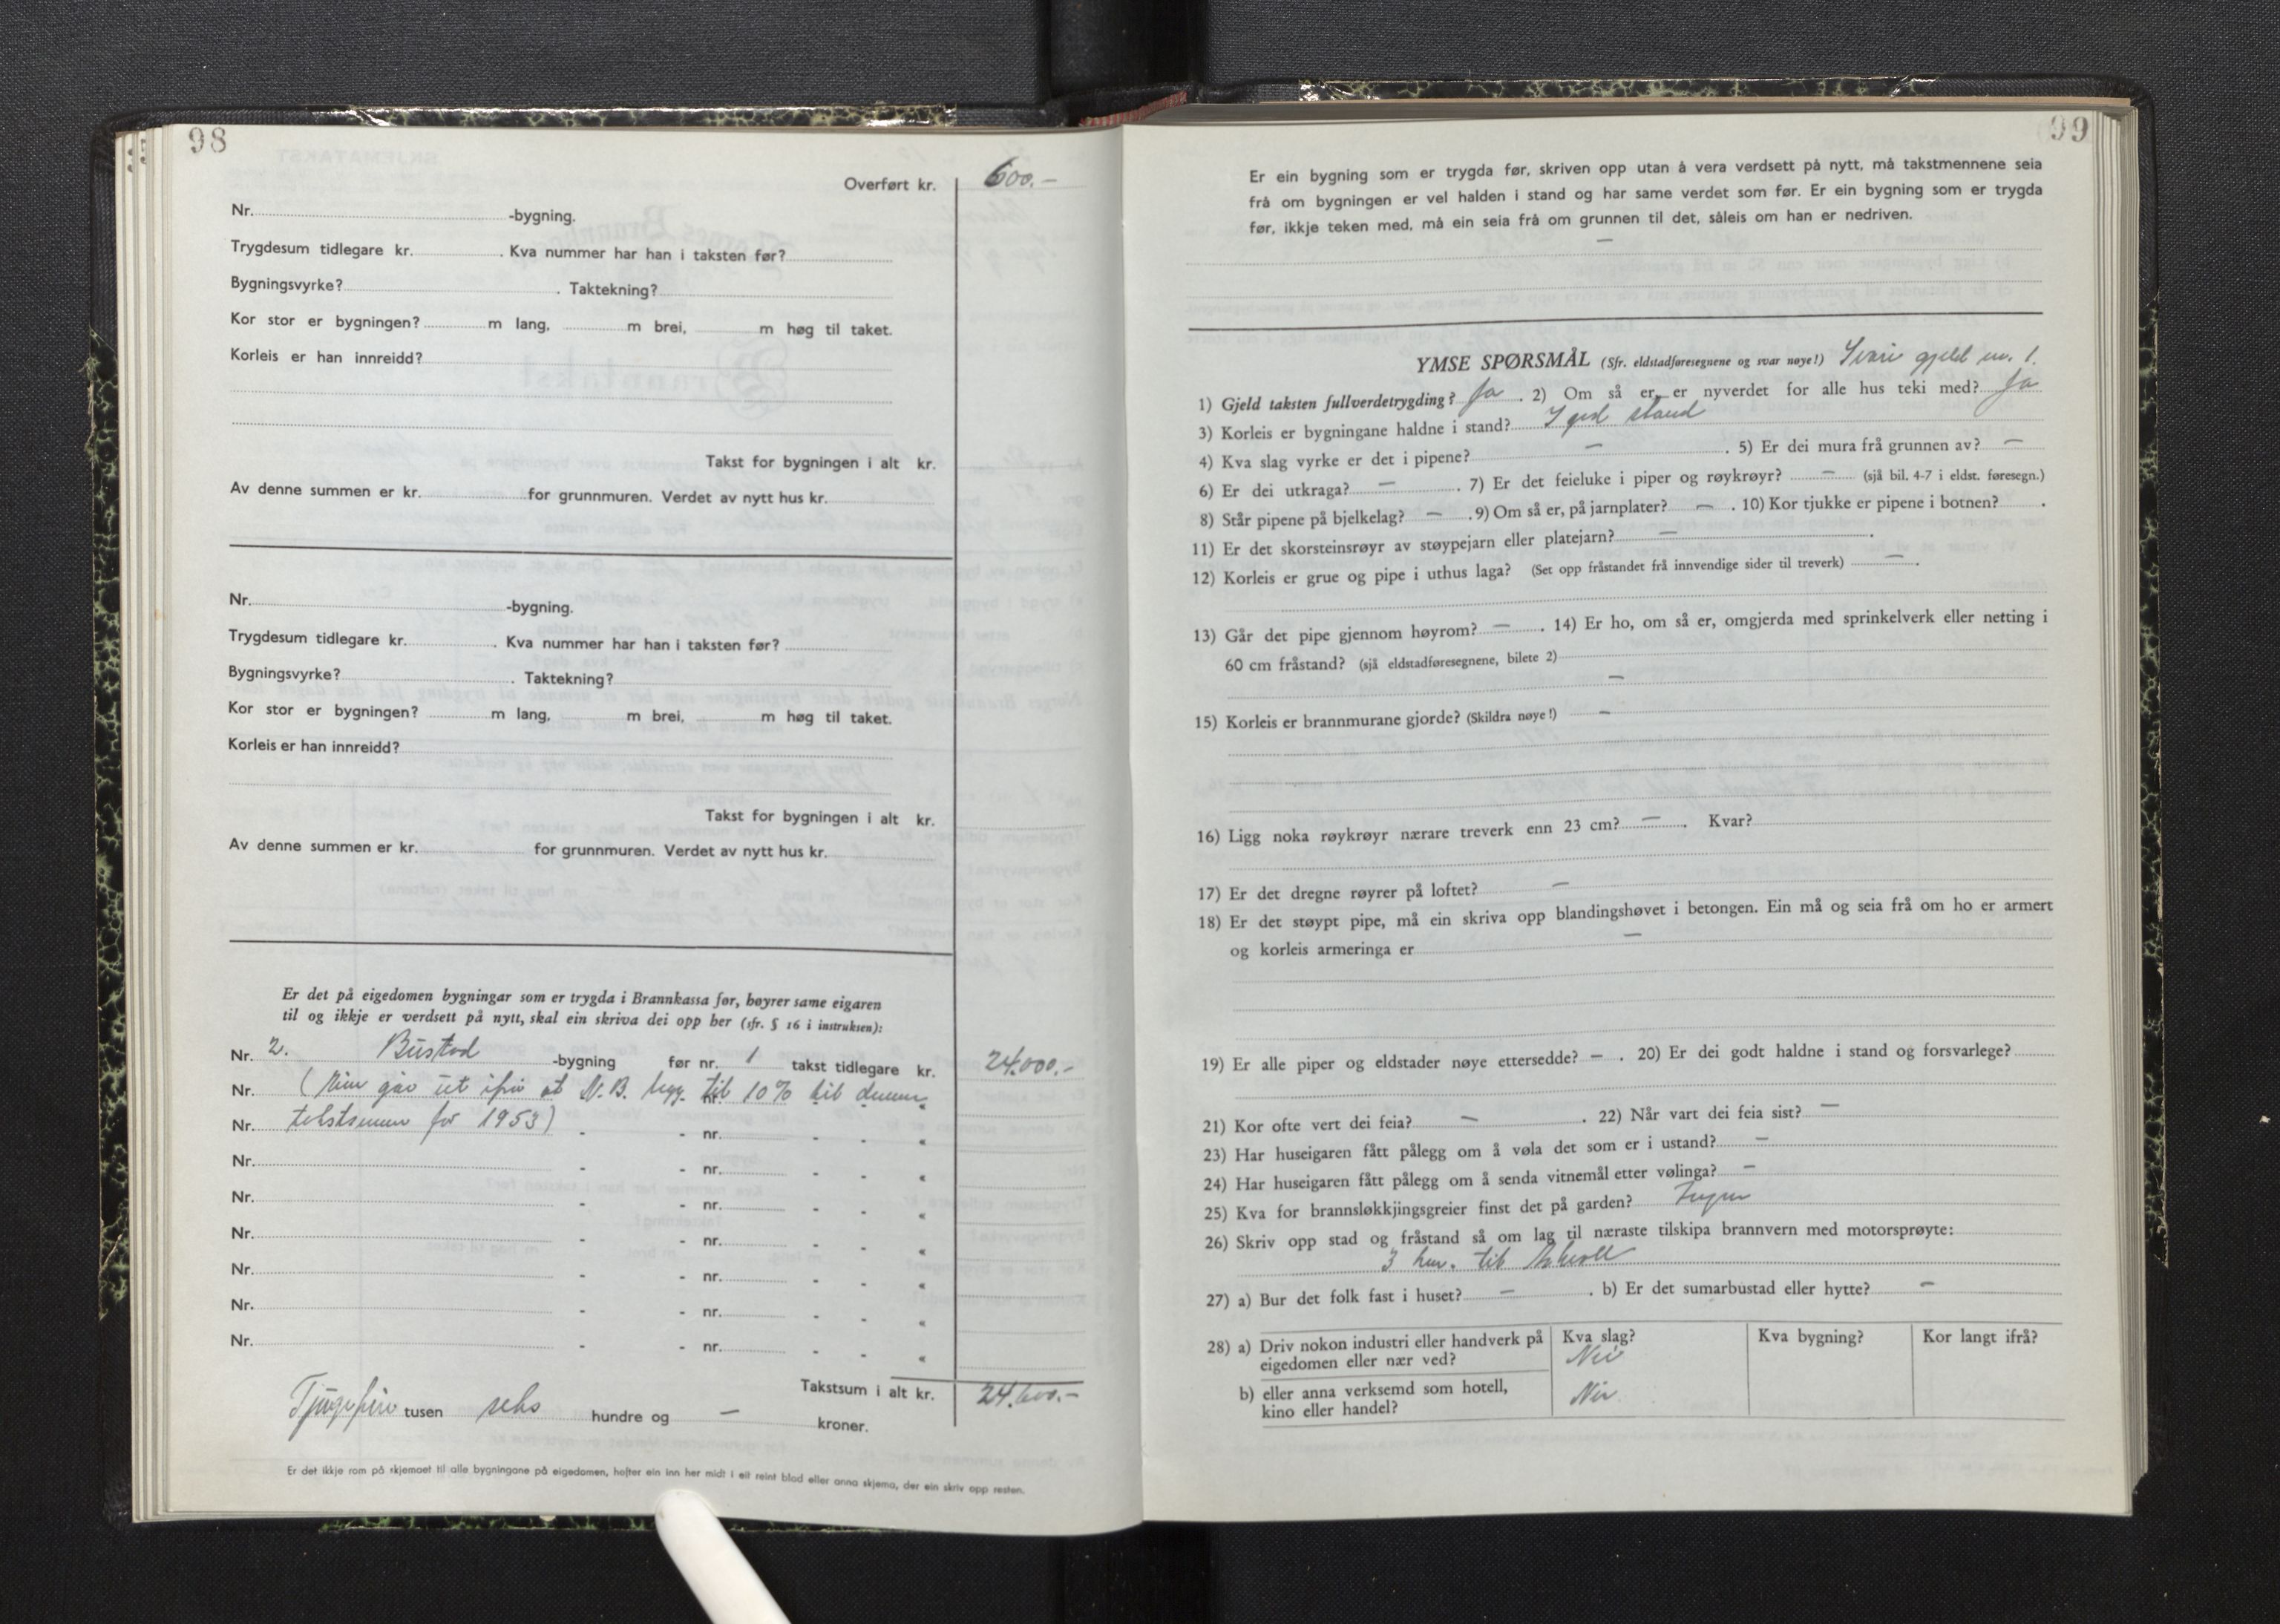 98
Overført kr. 600.-
Nr. -bygning.
Trygdesum tidlegare kr. . Kva nummer har han i taksten før?
Bygningsvyrke? . Taktekning?
Kor stor er bygningen? m lang, m brei, m høg til taket.
Korleis er han innreidd?
Takst for bygningen i alt kr.
Av denne summen er kr. for grunnmuren. Verdet av nytt hus kr.
Nr. -bygning.
Trygdesum tidlegare kr. . Kva nummer har han i taksten før?
Bygningsvyrke? . Taktekning?
Kor stor er bygningen? m lang, m brei, m høg til taket.
Korleis er han innreidd?
Takst for bygningen i alt kr.
Av denne summen er kr. for grunnmuren. Verdet av nytt hus kr.
Er det på eigedomen bygningar som er trygda i Brannkassa før, høyrer same eigaren
til og ikkje er verdsett på nytt, skal ein skriva dei opp her (sfr. § 16 i instruksen):
Nr. 2. Bustad -bygning før nr. 1 takst tidlegare kr. 24.000.-
Nr. ( går ut ifrå at N.B. legg til 10% til denne "
Nr. takstsummen for 1953) - - nr. - - "
Nr. - - nr. - - "
Nr. - - nr. - - "
Nr. - - nr. - - "
Nr. - - nr. - - "
Nr. - - nr. - - "
Nr. - - nr. - - "
Takstsum i alt kr. 24.600.-
Tjugefire tusen seks hundre og — kroner.
Er det ikkje rom på skjemaet til alle bygningane på eigedomen, hefter ein inn her midt i eit reint blad eller anna skjema, der ein skriv opp resten.
99
Er ein bygning som er trygda før, skriven opp utan å vera verdsett på nytt, må takstmennene seia
frå om bygningen er vel halden i stand og har same verdet som før. Er ein bygning som er trygda
før, ikkje teken med, må ein seia frå om grunnen til det, såleis om han er nedriven.
—
YMSE SPØRSMÅL (Sfr. eldstadføresegnene og svar nøye!) Svari gjeld nr. 1.
1) Gjeld taksten fullverdetrygding? Ja . 2) Om så er, er nyverdet for alle hus teki med? Ja
3) Korleis er bygningane haldne i stand? I god stand
4) Kva slag vyrke er det i pipene? — . 5) Er dei mura frå grunnen av? —
6) Er dei utkraga? — . 7) Er det feieluke i piper og røykrøyr? — (sjå bil. 4-7 i eldst. føresegn.)
8) Står pipene på bjelkelag? — . 9) Om så er, på jarnplater? — . 10) Kor tjukke er pipene i botnen? .
11) Er det skorsteinsrøyr av støypejarn eller platejarn? — .
12) Korleis er grue og pipe i uthus laga? (Set opp fråstandet frå innvendige sider til treverk) — .
13) Går det pipe gjennom høyrom? — . 14) Er ho, om så er, omgjerda med sprinkelverk eller netting i
60 cm fråstand? (sjå eldstadføresegnene, bilete 2)
—
15) Korleis er brannmurane gjorde? (Skildra nøye!) —
16) Ligg noka røykrøyr nærare treverk enn 23 cm? — . Kvar?
17) Er det dregne røyrer på loftet? —
18) Er det støypt pipe, må ein skriva opp blandingshøvet i betongen. Ein må og seia frå om ho er armert
og korleis armeringa er —
19) Er alle piper og eldstader nøye ettersedde? — . 20) Er dei godt haldne i stand og forsvarlege?
21) Kor ofte vert dei feia? — . 22) Når vart dei feia sist? —
23) Har huseigaren fått pålegg om å vøla det som er i ustand? —
24) Har huseigaren fått pålegg om å senda vitnemål etter vølinga? —
25) Kva for brannsløkkjingsgreier finst det på garden? Ingen
26) Skriv opp stad og fråstand så om lag til næraste tilskipa brannvern med motorsprøyte:
3 km. til Askvoll
27) a) Bur det folk fast i huset? — . b) Er det sumarbustad eller hytte? —
28) a) Driv nokon industri eller handverk på eigedomen eller nær ved? Kva slag? Nei Kva bygning? Kor langt ifrå?
b) eller anna verksemd som hotell, kino eller handel? Nei